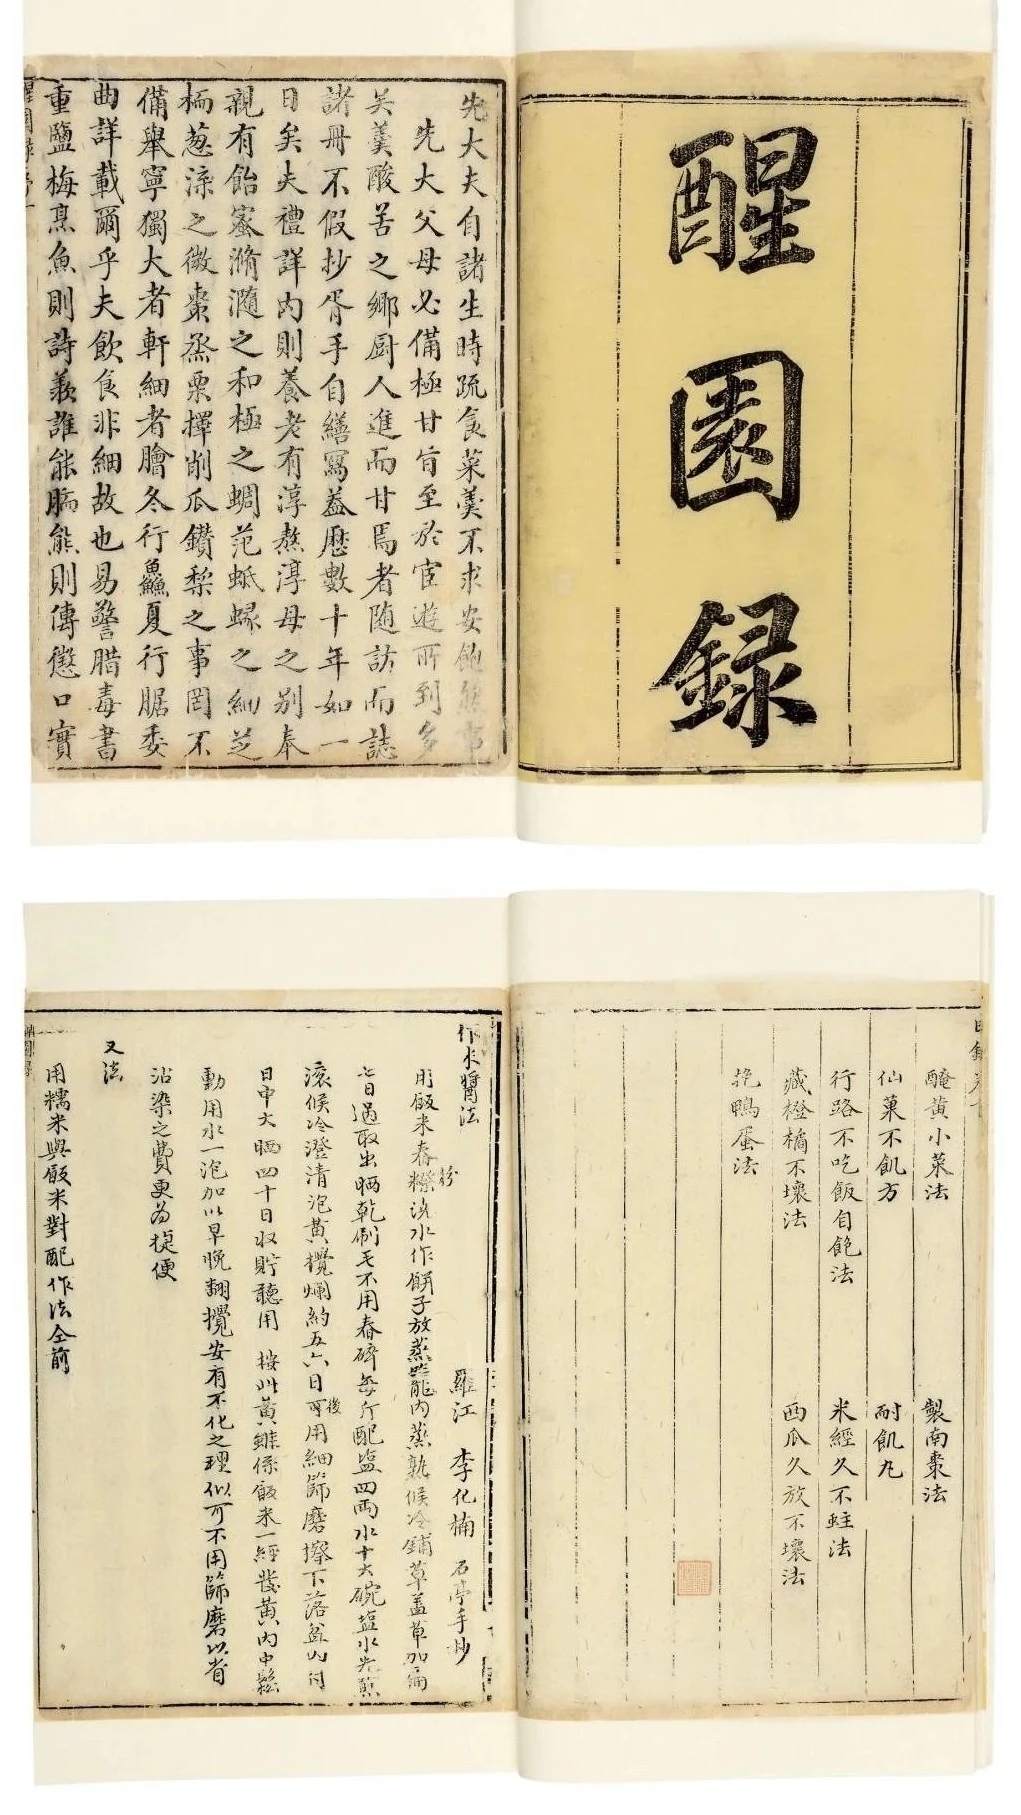 醒園録
先大夫自諸生時疏食菜羹不求安飽
先大父母必備極甘旨至於宦遊所到多
吳羹酸苦之鄉厨人進而甘焉者随訪而誌
諸冊不假抄胥手自繕寫葢歷數十年如一
日矣夫禮詳內則養老有淳熬淳母之别奉
親有飴蜜滫瀡之和極之蜩范蚳蝝之細芝
栭葱渿之微棗烝栗擇削瓜鑚梨之事罔不
備舉寧獨大者軒細者膾冬行鱻夏行腒委
曲詳載爾乎夫飲食非細故也易警腊毒書
重鹽梅烹魚則詩羨誰能胹熊則傳懲口實
醒園録序一
醃黃小菜法　製南棗法
仙菓不飢方　耐飢丸
行路不吃飯自飽法　米經久不蛀法
藏橙橘不壞法　西瓜久放不壞法
挽鴨蛋法
作米醬法
羅江　李化楠　石亭手抄
用飯米舂粉澆水作餅子放蒸籠內蒸熟候冷鋪草蓋草加扁
七日過取出晒乾刷毛不用舂碎每斤配盐四両水十大碗盐水先煎
滾候冷澄清泡黃攪爛約五六日後可用細篩磨擦下落盆內付
日中大晒四十日収貯聽用　按此黃雖係飯米一經發黃內中鬆
動用水一泡加以早晚翻攪安有不化之理似可不用篩磨以省
沾染之費更為捷便
又法
用糯米與飯米對配作法仝前